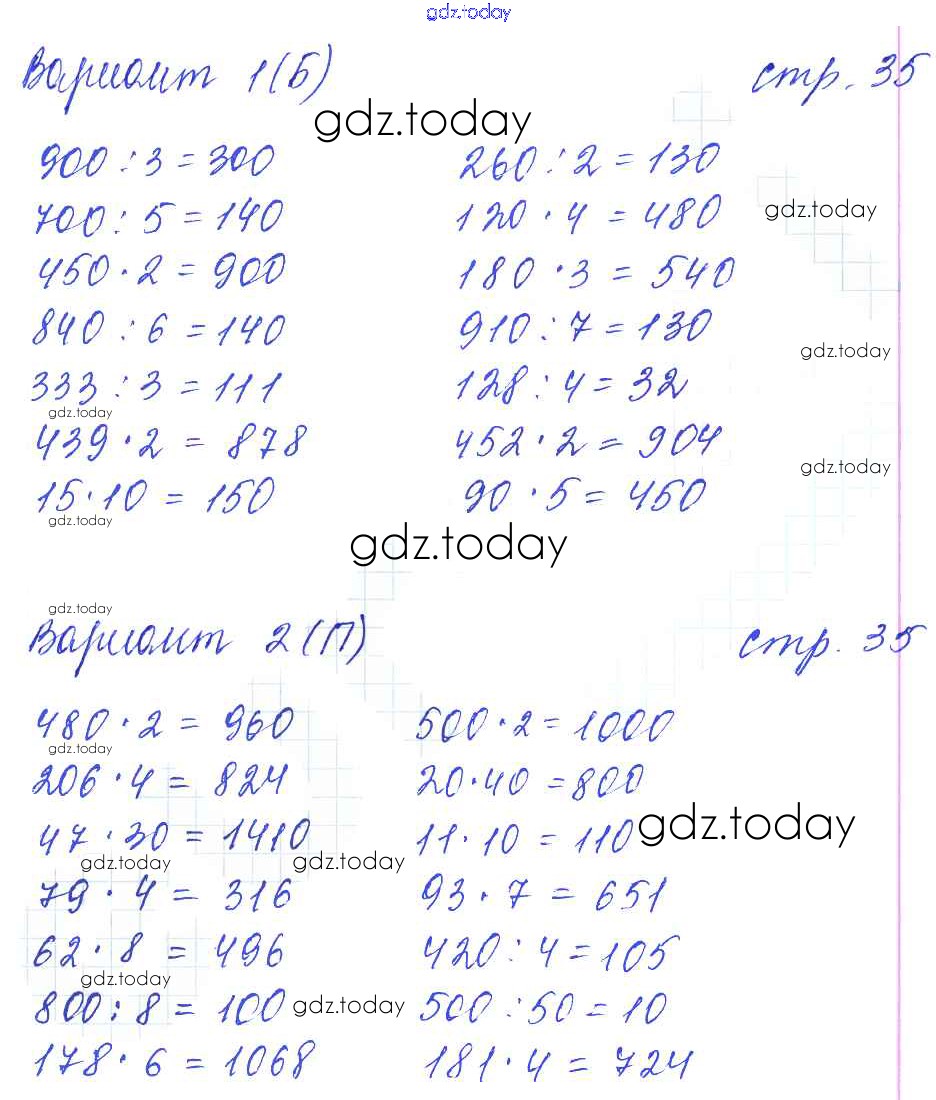 gdz.today
Вариант 1(Б) стр. 35
gdz.today
900 : 3 = 300 260 : 2 = 130
700 : 5 = 140 120 · 4 = 480 gdz.today
450 · 2 = 900 180 · 3 = 540
840 : 6 = 140 910 : 7 = 130
gdz.today
333 : 3 = 111 128 : 4 = 32
gdz.today
439 · 2 = 878 452 · 2 = 904
gdz.today
15 · 10 = 150 90 · 5 = 450
gdz.today
gdz.today
gdz.today
Вариант 2(П) стр. 35
480 · 2 = 960 500 · 2 = 1000
gdz.today
206 · 4 = 824 20 · 40 = 800
47 · 30 = 1410 11 · 10 = 110 gdz.today
gdz.today gdz.today
79 · 4 = 316 93 · 7 = 651
62 · 8 = 496 420 : 4 = 105
gdz.today
800 : 8 = 100 gdz.today 500 : 50 = 10
178 · 6 = 1068 181 · 4 = 724